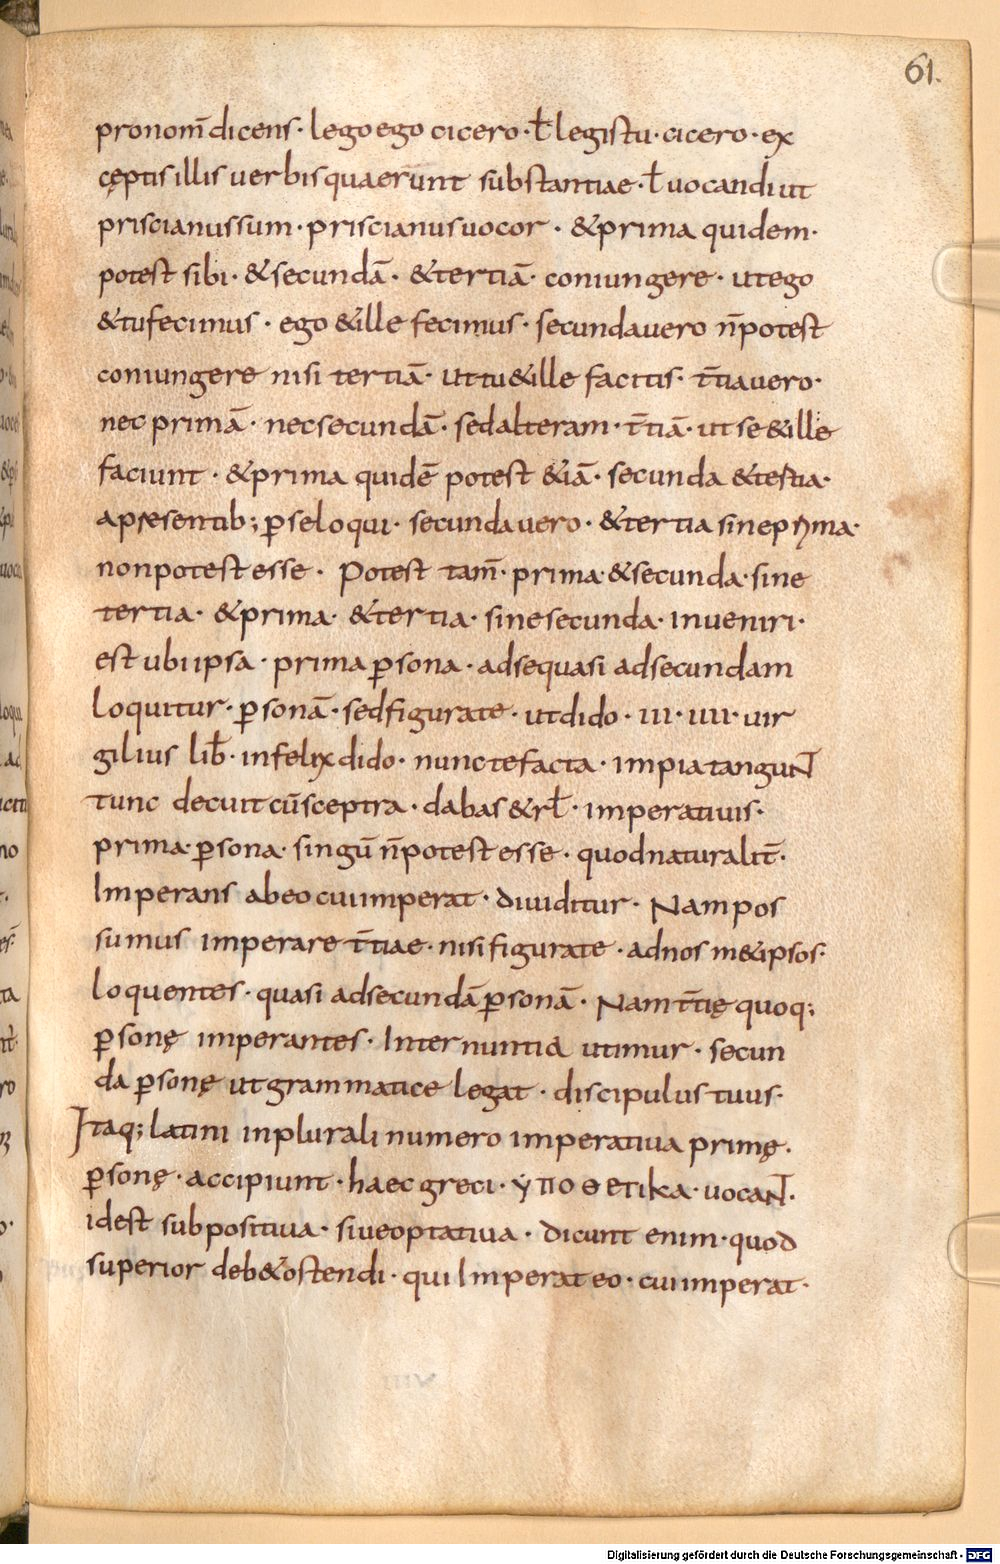 61.
pronom̄ dicens· lego ego cicero· ł legis tu· cicero· ex
cęptis illis uerbis quae r̄unt substantiae· ł uocandi ut
priscianus sum· priscianus uocor· & prima quidem·
potest sibi· & secundā· & tertiā· coniungere· ut ego
& tu fecimus· ego & ille fecimus· secunda uero n̄ potest
coniungere nisi tertiā· ut tu & ille facitis· t̄tia uero·
nec primā· nec secundā· sed alteram· t̄tiā· ut se & ille
faciunt· & prima quidē potest &iā· secunda & testia·
apresentib; p̱ se loqui· secunda uero· & tertia sine prima·
non potest esse· Potest tam̄· prima· & secunda· sine
tertia· & prima· & tertia· sine secunda· inueniri·
est ubi ipsa· prima ꝑsona· ad se quasi ad secundam
loquitur· ꝑsonā· sed figurate· ut dido· iii· iiii· uir
gilius lib̄· infelix dido· nunc te facta· impia tangunt
tunc decuit cū sceptra· dabas & rł· imperatiuis·
prima· ꝑsona· singū n̄ potest esse· quod naturalit̄·
Imperans ab eo cui imperat· diuiditur· Nam pos
sumus imperare t̄tiae· nisi figurate· ad nos m& ipsos·
loquentes· quasi ad secundā ꝑsonā· Nam t̄tię quoq;
ꝑsonę imperantes· Internuntia utimur· secun
da ꝑsonę ut grammatice legat· discipulus tuus·
Itaq; latini in plurali numero imperatiua primę·
ꝑsonę· accipiunt· haec greci· ẏποθετικα· uocant·
id est subpositiua· siue optatiua· dicunt enim· quod
superior deb& ostendi· qui Imperat eo· cui imperat·
Digitalisierung gefördert durch die Deutsche Forschungsgemeinschaft - DFG